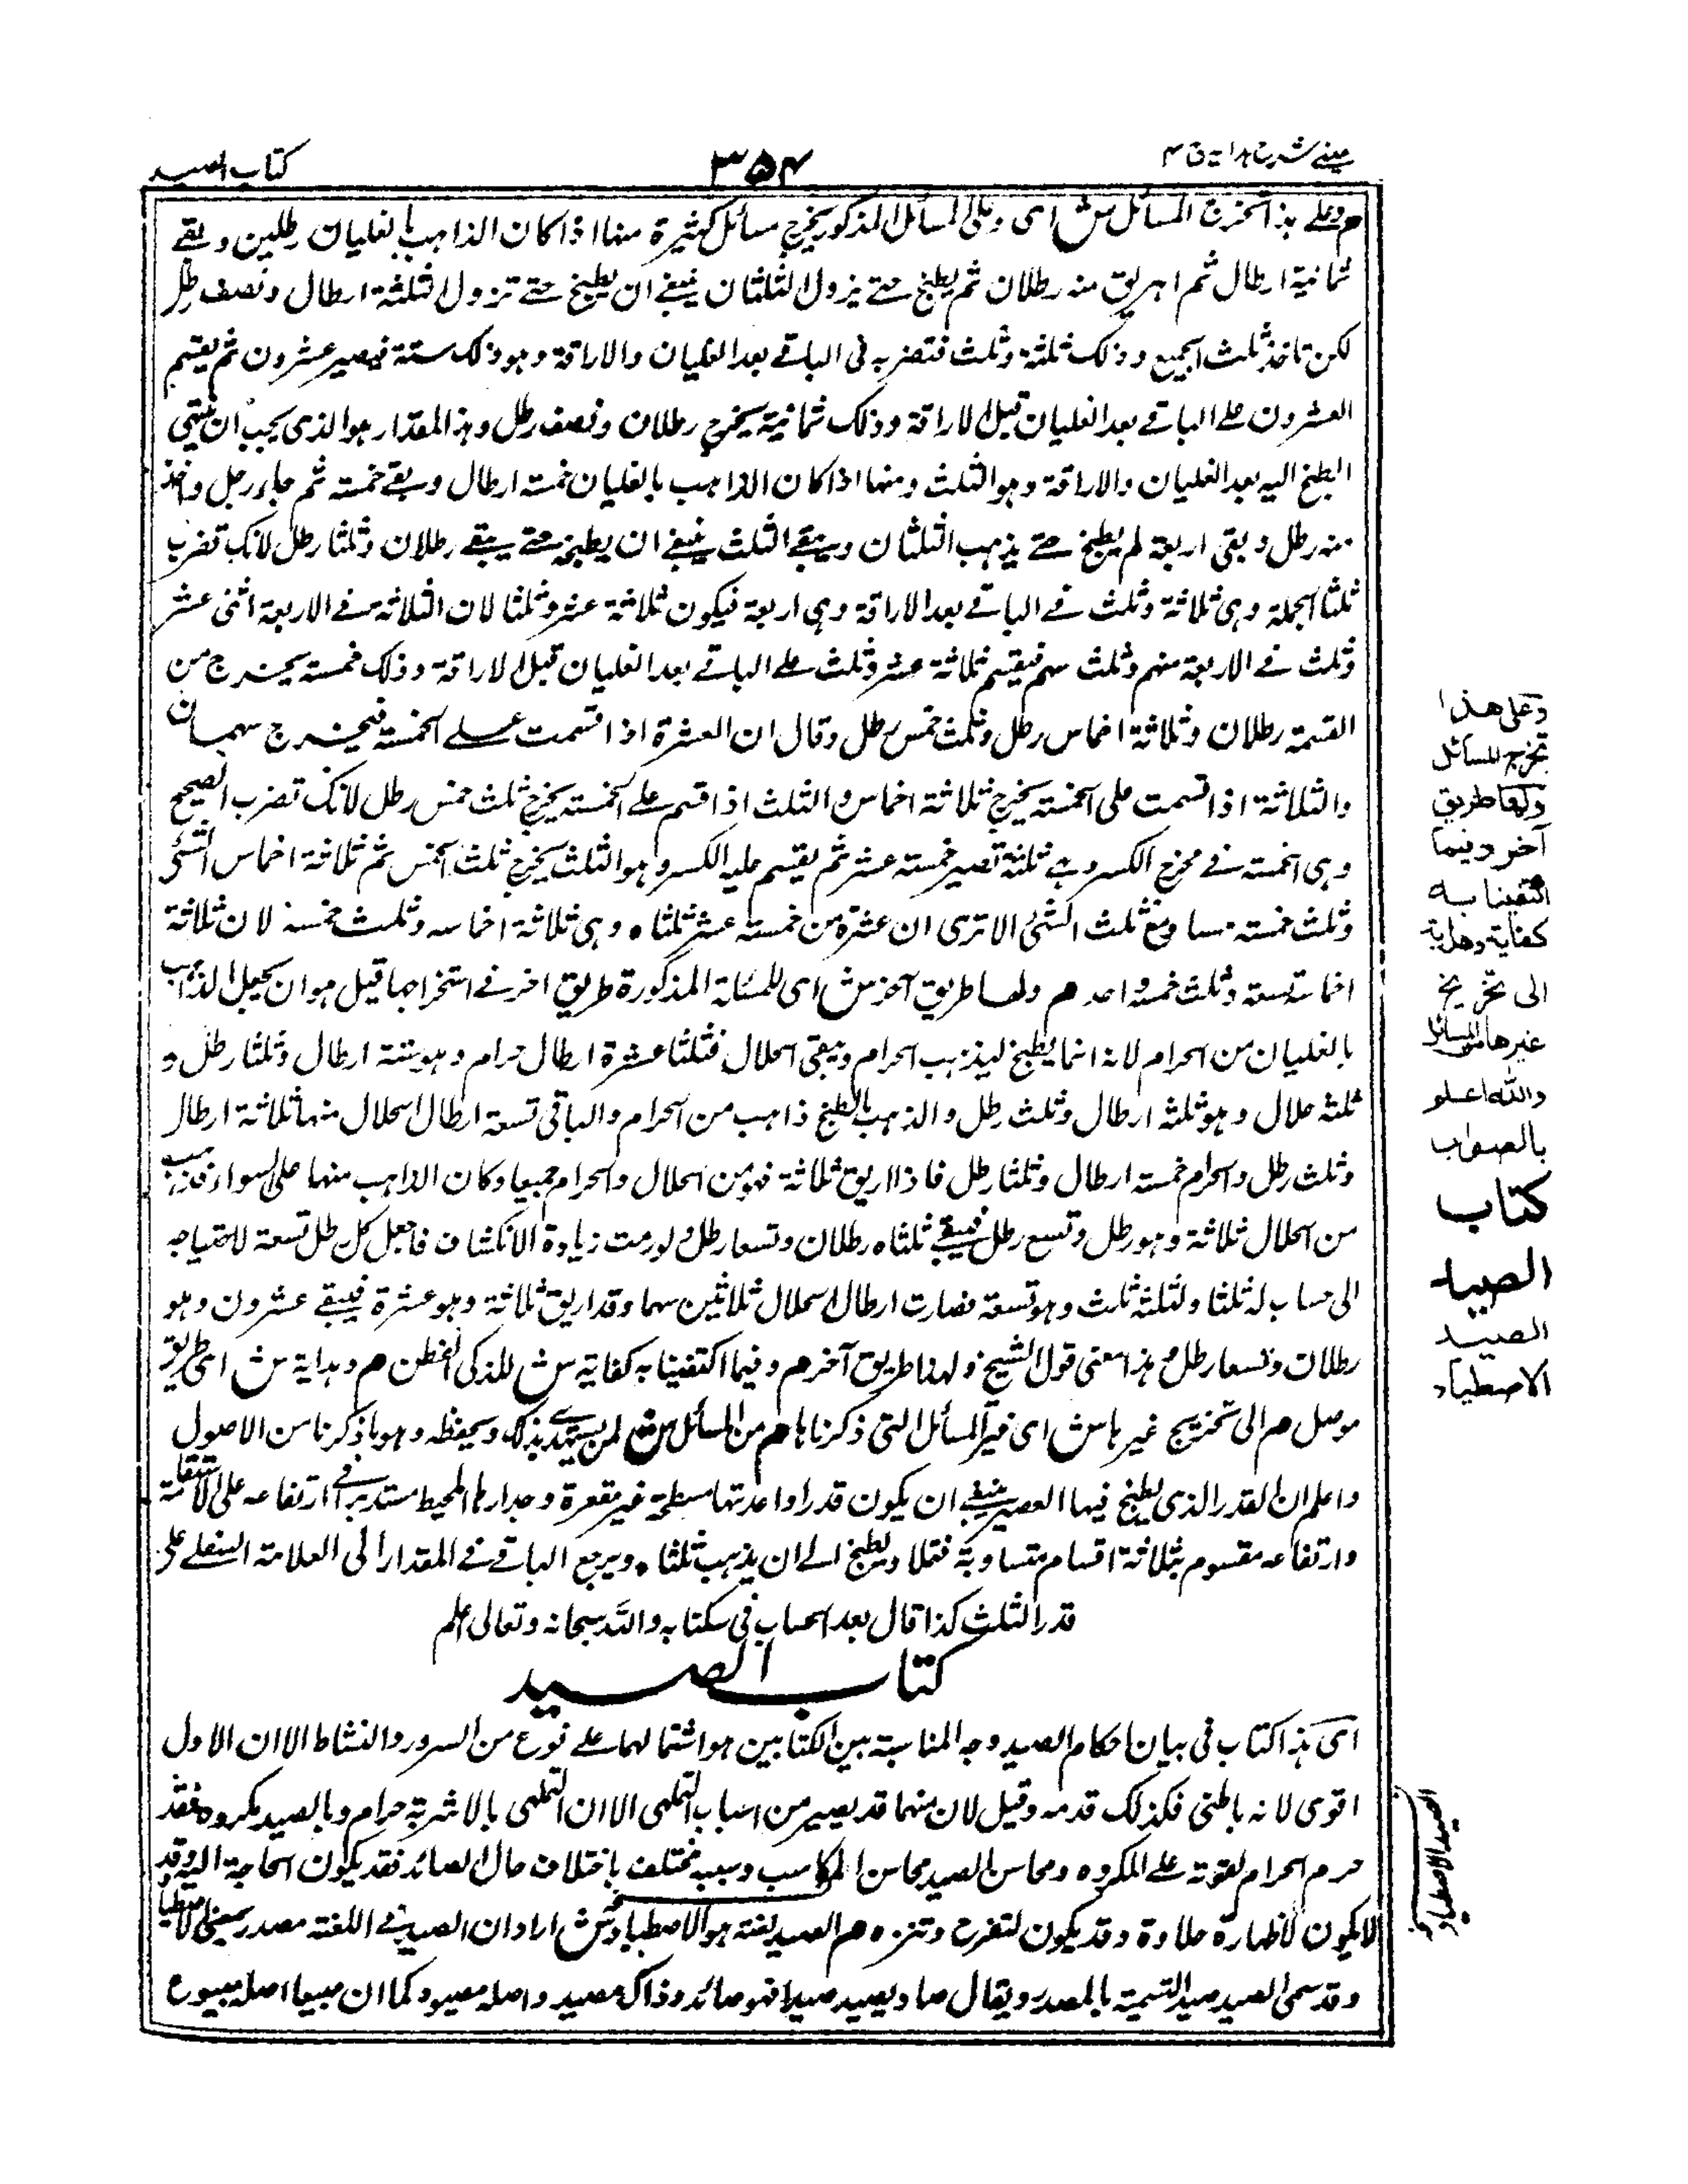 عينے شرح هداية ج ٤
٣٥٤
كتاب الصيد
م وعلے هذا تخرج المسائل ش اى وعلى المسائل المذكور يخرج مسائل كثيرة منها اذا كان الذاهب بالغليان رطلين وبقے
ثمانية ارطال ثم اهريق منه رطلان ثم يطبخ حتے يزول الثلثان ينبغے ان يطبخ حتے تزول الثلثة ارطال ونصف رطل
لكن تاخذ ثلث الجميع وذلك ثلثة وثلث فتضربه فى الباقے بعد الغليان والاراقة وهو ذلك ستة فيصير عشرون ثم يقسم
العشرون علے الباقے بعد الغليان قبل الاراقة وذلك ثمانية يخرج رطلان ونصف رطل وهذا المقدار هو الذى يجب ان ينتهى
الطبخ اليه بعد الغليان والاراقة وهو الثلث ومنها اذا كان الذاهب بالغليان خمسة ارطال وبقے خمسة ثم جاء رجل واخذ
منه رطل وبقى اربعة لم يطبخ حتے يذهب الثلثان ويبقے الثلث ينبغے ان يطبخه حتے يبقے رطلان وثلثا رطل لانك تضرب
ثلثا الجملة وهى ثلاثة وثلث فے الباقے بعد الاراقة وهى اربعة فيكون ثلاثة عشر وثلثا لان الثلاثة فے الاربعة اثنى عشر
وثلث فے الاربعة سهم وثلث سهم فيقسم ثلاثة عشر وثلث علے الباقے بعد الغليان قبل الاراقة وذلك خمسة يخرج من
القسمة رطلان وثلاثة اخماس رطل وثلث خمس رطل وقال ان العشرة اذا قسمت علے الخمسة فيخرج سهمان
والثلاثة اذا قسمت على الخمسة يخرج ثلاثة اخماس والثلث اذا قسم علے الخمسة يخرج ثلث خمس رطل لانك تضرب الصحيح
وهى الخمسة فے مخرج الكسر وهى ثلثة تصير خمسة عشر ثم يقسم عليه الكسر وهو الثلث يخرج ثلث الخمس ثم ثلاثة اخماس الشئ
وثلث خمسة مساو مع ثلث الشئ الا ترى ان عشرة من خمسة عشر ثلثاه وهى ثلاثة اخماسه وثلث خمسه لان ثلاثة
اخماسه تسعة وثلث خمسه واحد م ولها طريق آخر ش اى للمسئلة المذكورة طريق اخر فے استخراجها قيل هو ان يجعل الذاهب
بالغليان من الحرام لانه انما يطبخ ليذهب الحرام ويبقى الحلال فثلثا عشرة ارطال حرام وهو ستة ارطال وثلثا رطل و
ثلثه حلال وهو ثلثة ارطال وثلث رطل والذهب بالطبخ ذاهب من الحرام والباقى تسعة ارطال الحلال منها ثلاثة ارطال
وثلث رطل والحرام خمسة ارطال وثلثا رطل فاذا اريق ثلاثة فهو من الحلال والحرام جميعا وكان الذاهب منهما على السواء فذهب
من الحلال ثلاثة وهو رطل وتسع رطل فيبقے ثلثاه رطلان وتسعا رطل ولو رمت زيادة الانكشاف فاجعل كل رطل تسعة لاحتياجه
الى حساب له ثلثا ولثلثه ثلث وهو تسعة فصارت ارطال الحلال ثلاثين سهما وقد اريق ثلاثة وهو عشرة فيبقے عشرون وهو
رطلان وتسعا رطل م هذا معنى قول الشيخ ولهذا طريق آخر م وفيما اكتفينا به كفاية ش للذكى الفطن م وهداية ش اى طريق
موصل م الى تخريج غيرها ش اى غير المسائل التى ذكرناها م من المسائل ش لمن يستهدى بذلك ويحفظه وهو ما ذكرنا من الاصول
واعلم ان القدر الذى يطبخ فيها العصير ينبغے ان يكون قدرا واعدتها مسطحة غير مقعرة وجدارها المحيط مستدير فے ارتفاعه على الاستقامة
وارتفاعه مقسوم بثلاثة اقسام متساوية فتملأ ويطبخ الے ان يذهب ثلثاه ويرجع الباقے فے المقدار الى العلامة السفلے على
قدر الثلث كذا قال بعد الحساب فى كتابه والله سبحانه وتعالى اعلم
كتاب الصيد
اى هذا كتاب فى بيان احكام الصيد وجه المناسبة بين الكتابين هو اشتمالهما علے نوع من السرور والنشاط الا ان الاول
اقوى لانه باطنى فكذلك قدمه وقيل لان منهما قد يصير من اسباب التلهى الا ان التلهى بالاشربة حرام وبالصيد مكروه فقد
حرم الحرام لقوته علے المكروه ومحاسن الصيد محاسن المكاسب وسببه مختلف باختلاف حال الصائد فقد يكون الحاجة اليه وقد
لا يكون لاظهاره حلاوة وقد يكون لتفرح وتنزه م الصيد لغة هو الاصطياد ش اراد ان الصيد فے اللغة مصدر بمعنى الاصطياد
وقد سمى الصيد صيدا لتسمية بالمصدر ويقال صاد يصيد صيدا فهو صائد وذاك مصيد واصله مصيود كما ان مبيعا اصله مبيوع
وعلى هذا
تخرج المسائل
ولها طريق
آخر وفيما
اكتفينا به
كفاية وهداية
الى تخريج
غيرها من المسائل
والله اعلم
بالصواب
كتاب
الصيد
الصيد
الاصطياد
الصيد الاصطياد